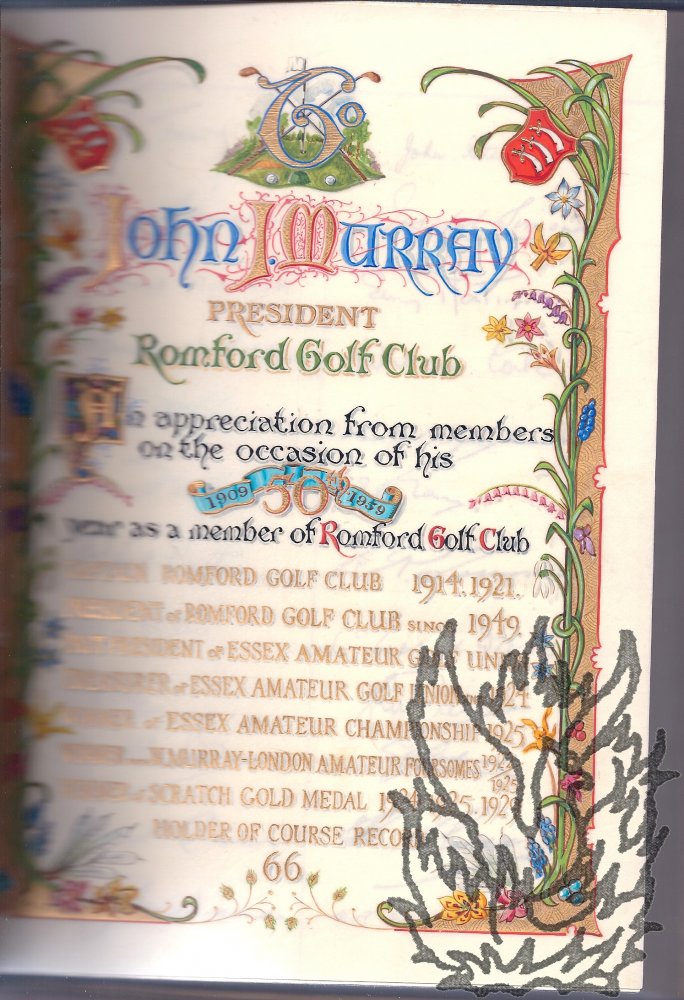 To
John I. Murray
PRESIDENT
Romford Golf Club
An appreciation from members
on the occasion of his
1909 50th 1959
year as a member of Romford Golf Club
CAPTAIN ROMFORD GOLF CLUB 1914. 1921.
PRESIDENT of ROMFORD GOLF CLUB SINCE 1949.
PAST PRESIDENT of ESSEX AMATEUR GOLF UNION
TREASURER of ESSEX AMATEUR GOLF UNION 1924
WINNER of ESSEX AMATEUR CHAMPIONSHIP 1925
W. MURRAY-LONDON AMATEUR FOURSOMES
1925
WINNER of SCRATCH GOLD MEDAL 1925.
HOLDER OF COURSE RECORD
66